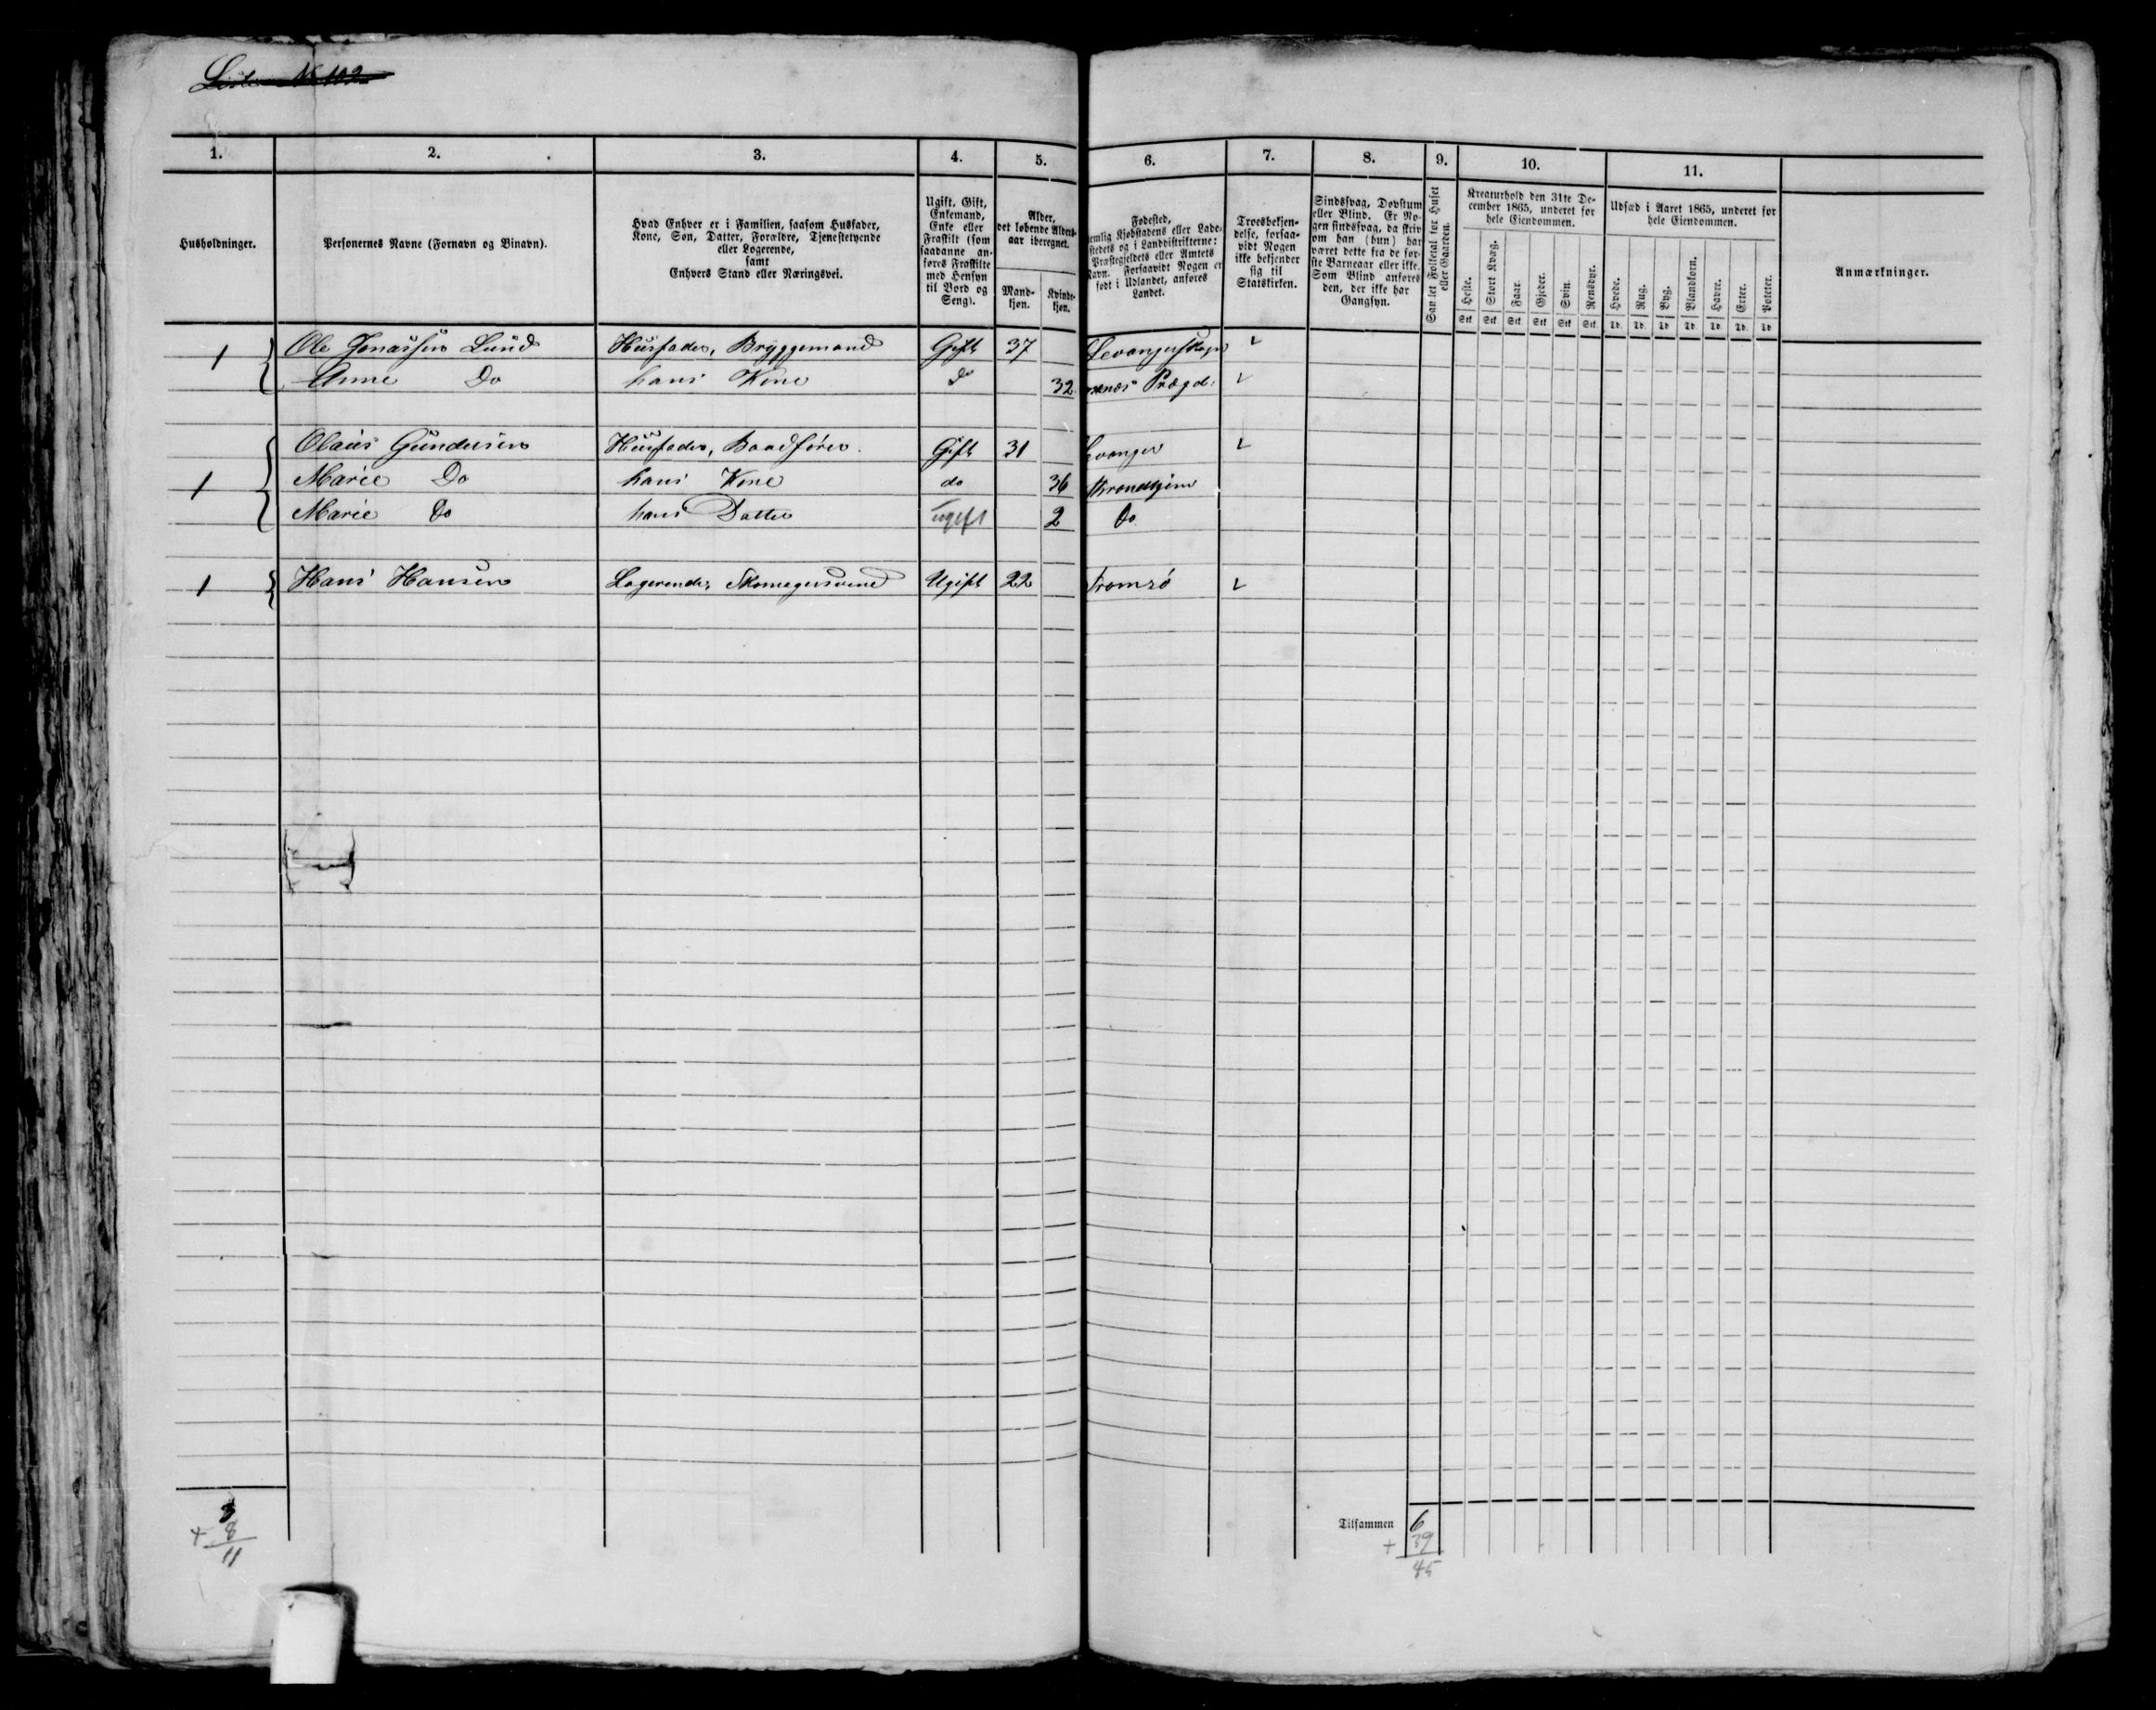 Liste No 102
1. 2. 3. 4. 5. 6. 7. 8. 9. 10. 11.
Husholdninger.
Personernes Navne (Fornavn og Binavn).
Hvad Enhver er i Familien, saasom Husfader,
Kone, Søn, Datter, Forældre, Tjenestetyende
eller Logerende,
samt
Enhvers Stand eller Næringsvei.
Ugift, Gift,
Enkemand,
Enke eller
Fraskilt (som
saadanne an-
føres Fraskilte
med Hensyn
til Bord og
Seng).
Alder,
det løbende Alders-
aar iberegnet.
Mand-
kjøn.
Kvinde-
kjøn.
Fødested,
nemlig Kjøbstadens eller Lade-
stedets og i Landdistrikterne:
Præstegjeldets eller Amtets
Navn. Forsaavidt Nogen er
født i Udlandet, anføres
Landet.
Troesbekjen-
delse, forsaa-
vidt Nogen
ikke bekjender
sig til
Statskirken.
Sindssvag, Døvstum
eller Blind. Er No-
gen sindssvag, da skriv
om han (hun) har
været dette fra de før-
ste Barneaar eller ikke.
Som Blind anføres
den, der ikke har
Gangsyn.
Samlet Folketal for Huset
eller Gaarden.
Kreaturhold den 31te De-
cember 1865, underet for
hele Eiendommen.
Heste. Stort Kvæg. Faar. Gjeder. Svin. Rensdyr.
Stk Stk Stk. Stk Stk Stk.
Udsæd i Aaret 1865, underet for
hele Eiendommen.
Hvede. Rug. Byg. Blandkorn. Havre. Erter. Poteter.
Td. Td. Td Td. Td. Td. Td
Anmærkninger.
1 Ole Jonassen Lund Husfader, Bryggemand Gift 37 Levanger
Anne Do hans Kone Do 32 Prægd:
1 Olaus Gundersen Husfader, Baadfører. Gift 31 Levanger
Marie Do hans Kone do 36 Throndhjem
Marie Do hans Datter ugift 2 Do
1 Hans Hansen Logerende, Skomagersvend Ugift 22 Tromsø
3
+ 8
11
Tilsammen 6
+ 39
45